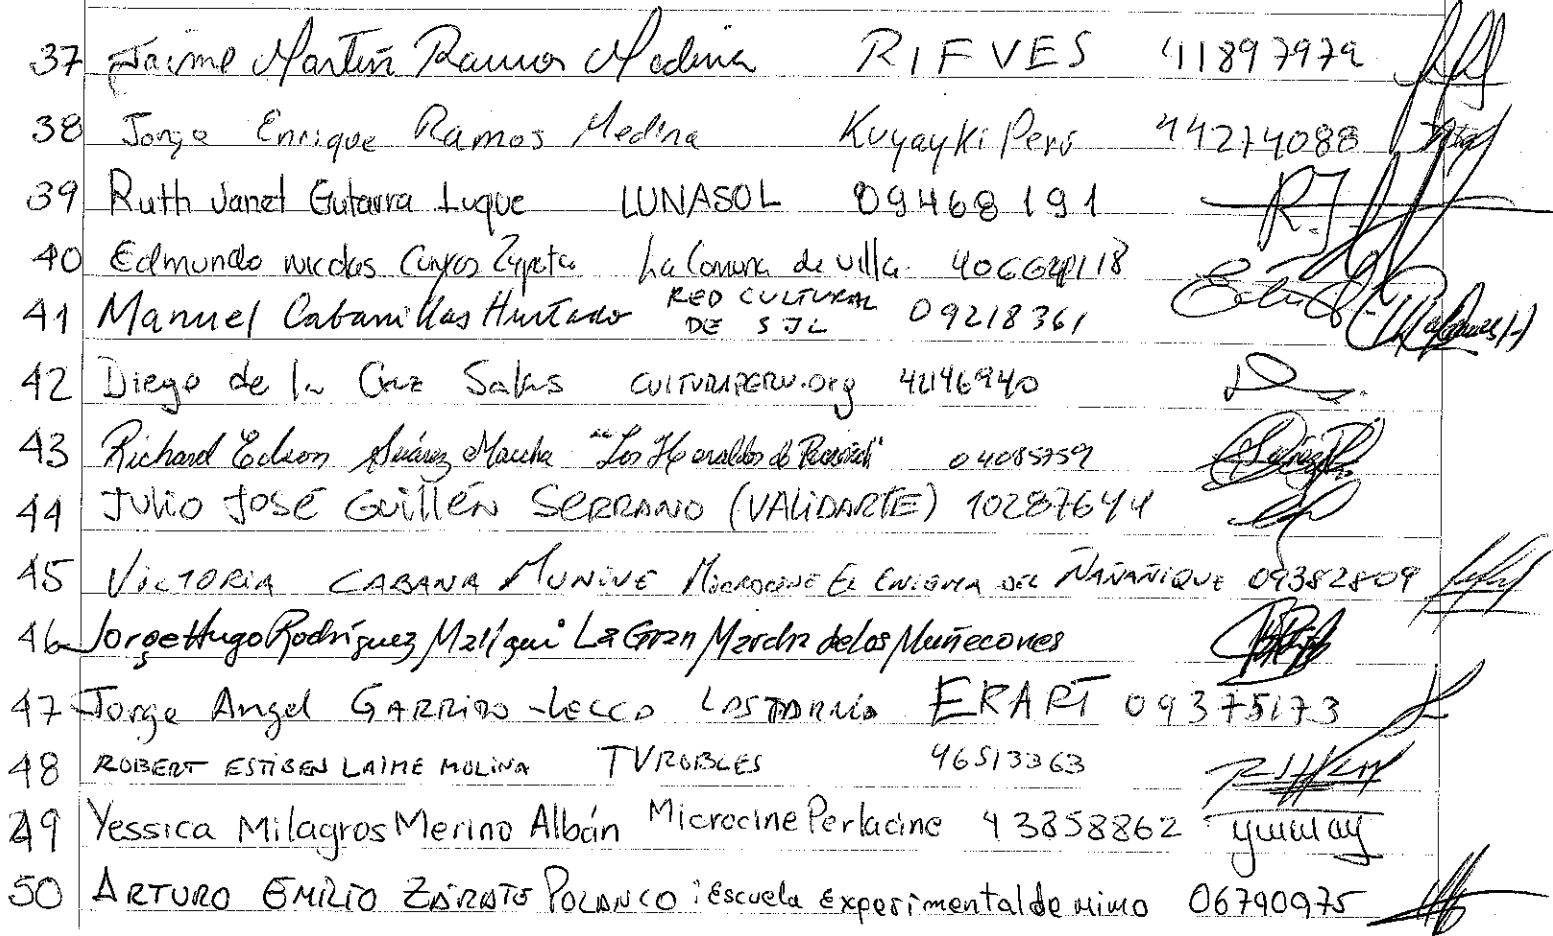 37 Jaime Martin Ramos Medina RIFVES 41897972
38 Jorge Enrique Ramos Medina Kuyayki Perú 44274088
39 Ruth Janet Gutarra Luque LUNASOL 09468191
40 Edmundo Nicolas Zapata La Comuna de Villa
41 Manuel Cabanillas Hurtado RED CULTURAL DE SJL 09218361
42 Diego de la Cruz Salas CULTURAPERU.org 42146940
43 Richard Edson Suárez "Los Heraldos de 04085759
44 Julio José Guillén Serrano (VALIDARTE) 10287644
45 VICTORIA CABANA MUNIVE MICROCINE EL ENIGMA DEL ÑAÑAÑIQUE 09382809
46 Jorge Hugo Rodríguez Mallqui La Gran Marcha de los Muñecones
47 Jorge Angel GARRIDO-LECCA EKART 09375173
48 ROBERT ESTIBEN LAIME MOLINA TVROBLES 46513363
49 Yessica Milagros Merino Albán Microcine Perlacine 43858862
50 ARTURO EMILIO ZÁRATE POLANCO: Escuela Experimental de mimo 06790975